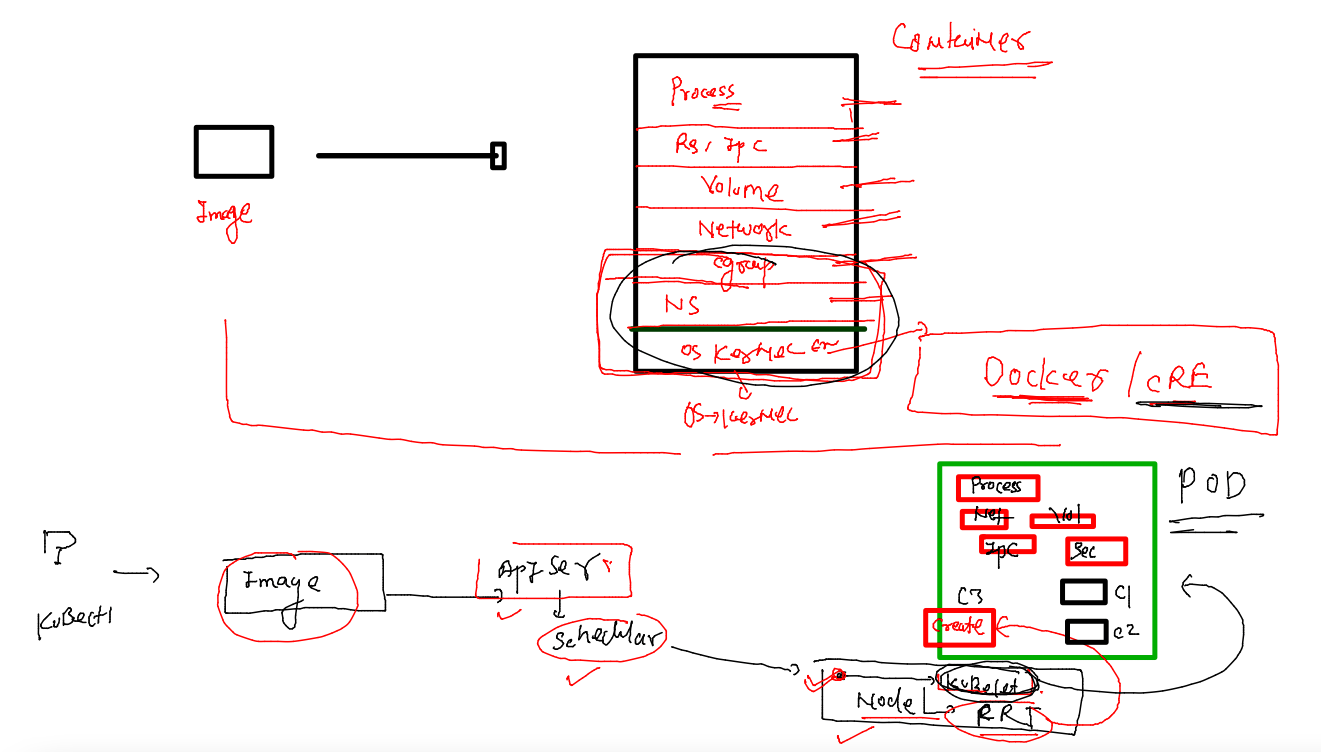 Container
Process
Rs, Ipc
Volume
Network
cgroup
NS
OS Kernel
Image
OS→Kernel
Docker / CRE
POD
Process
Net
Vol
Ipc
Sec
C1
C3
Create
C2
?
KuBectl
Image
Api Ser
Schedular
Kubelet
Node
RRI